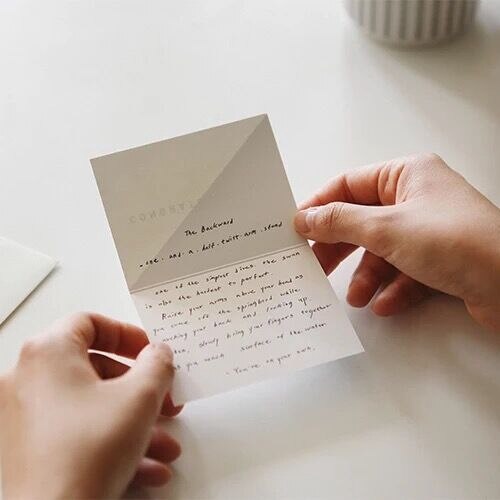 CONGRA
The Backward
- one . and . a . half . twist . arm . stand
one of the simplest dives, the swan
is also the hardest to perfect.
Raise your arms above your head as
you come off the springboard while
arching your back and looking up.
slowly bring your fingers together
as you reach surface of the water.
- You're on your own.